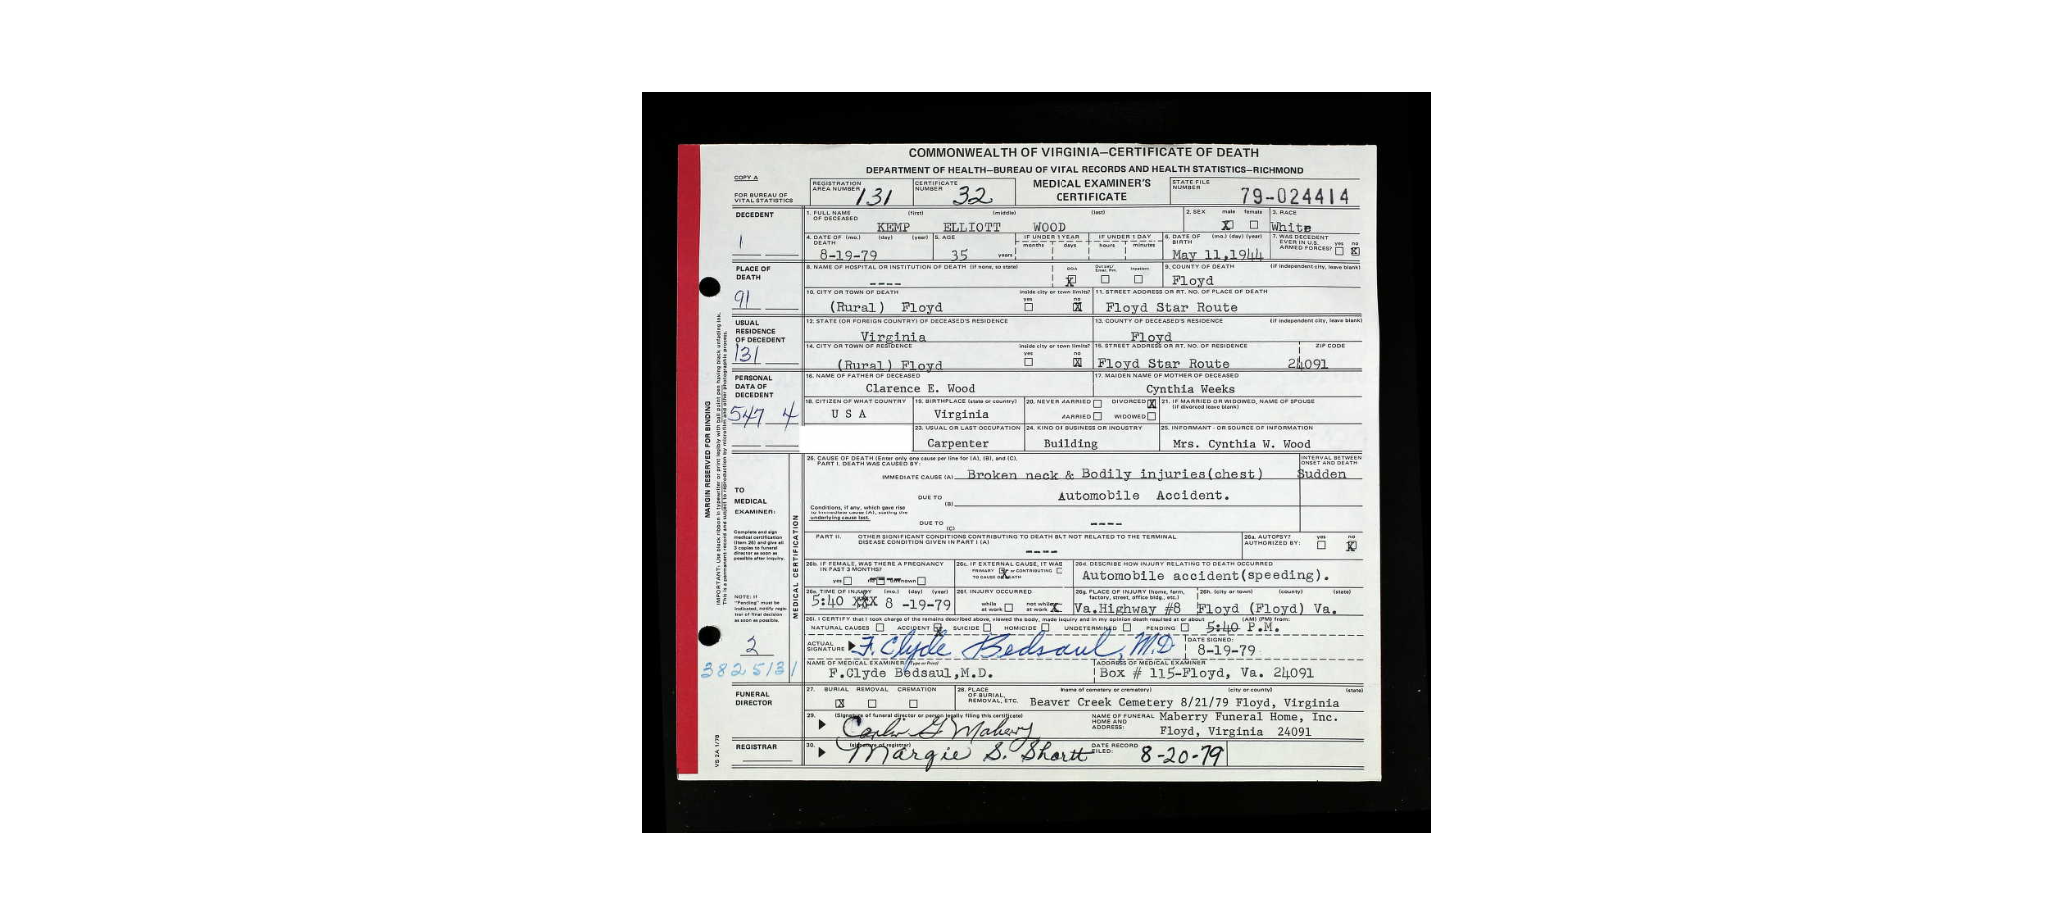 COMMONWEALTH OF VIRGINIA—CERTIFICATE OF DEATH
DEPARTMENT OF HEALTH—BUREAU OF VITAL RECORDS AND HEALTH STATISTICS—RICHMOND
COPY A
FOR BUREAU OF VITAL STATISTICS
REGISTRATION AREA NUMBER 131
CERTIFICATE NUMBER 32
MEDICAL EXAMINER'S CERTIFICATE
STATE FILE NUMBER 79-024414
DECEDENT
1
1. FULL NAME OF DECEASED (first) (middle) (last)
KEMP ELLIOTT WOOD
2. SEX male female X
3. RACE White
4. DATE OF DEATH (mo.) (day) (year)
8-19-79
5. AGE 35 years
IF UNDER 1 YEAR months days
IF UNDER 1 DAY hours minutes
6. DATE OF BIRTH (mo.) (day) (year)
May 11,1944
7. WAS DECEDENT EVER IN U.S. ARMED FORCES? yes no X
PLACE OF DEATH
91
8. NAME OF HOSPITAL OR INSTITUTION OF DEATH (if none, so state)
----
DOA X Inpatient
9. COUNTY OF DEATH (if independent city, leave blank)
Floyd
10. CITY OR TOWN OF DEATH inside city or town limits? yes no X
(Rural) Floyd
11. STREET ADDRESS OR RT. NO. OF PLACE OF DEATH
Floyd Star Route
USUAL RESIDENCE OF DECEDENT
131
12. STATE (OR FOREIGN COUNTRY) OF DECEASED'S RESIDENCE
Virginia
13. COUNTY OF DECEASED'S RESIDENCE (if independent city, leave blank)
Floyd
14. CITY OR TOWN OF RESIDENCE inside city or town limits? yes no X
(Rural) Floyd
15. STREET ADDRESS OR RT. NO. OF RESIDENCE ZIP CODE
Floyd Star Route 24091
PERSONAL DATA OF DECEDENT
547 4
16. NAME OF FATHER OF DECEASED
Clarence E. Wood
17. MAIDEN NAME OF MOTHER OF DECEASED
Cynthia Weeks
18. CITIZEN OF WHAT COUNTRY
U S A
19. BIRTHPLACE (state or country)
Virginia
20. NEVER MARRIED DIVORCED X
MARRIED WIDOWED
21. IF MARRIED OR WIDOWED, NAME OF SPOUSE (if divorced leave blank)
23. USUAL OR LAST OCCUPATION
Carpenter
24. KIND OF BUSINESS OR INDUSTRY
Building
25. INFORMANT - OR SOURCE OF INFORMATION
Mrs. Cynthia W. Wood
MARGIN RESERVED FOR BINDING
MEDICAL CERTIFICATION
TO MEDICAL EXAMINER:
Complete and sign medical certification (item 26) and give all 3 copies to funeral director as soon as possible after inquiry.
NOTE: If "Pending" must be indicated, notify registrar of final decision as soon as possible.
2
3825131
26. CAUSE OF DEATH (Enter only one cause per line for (A), (B), and (C).
PART I. DEATH WAS CAUSED BY:
INTERVAL BETWEEN ONSET AND DEATH
IMMEDIATE CAUSE (A) Broken neck & Bodily injuries(chest) Sudden
DUE TO (B) Automobile Accident.
Conditions, if any, which gave rise to immediate cause (A), stating the underlying cause last.
DUE TO (C) ----
PART II. OTHER SIGNIFICANT CONDITIONS CONTRIBUTING TO DEATH BUT NOT RELATED TO THE TERMINAL DISEASE CONDITION GIVEN IN PART I (A)
----
26a. AUTOPSY? AUTHORIZED BY: yes no X
26b. IF FEMALE, WAS THERE A PREGNANCY IN PAST 3 MONTHS?
26c. IF EXTERNAL CAUSE, IT WAS
PRIMARY X or CONTRIBUTING
TO CAUSE OF DEATH
26d. DESCRIBE HOW INJURY RELATING TO DEATH OCCURRED
Automobile accident(speeding).
26e. TIME OF INJURY (mo.) (day) (year)
5:40 XXX 8 -19-79
26f. INJURY OCCURRED while at work not while at work X
26g. PLACE OF INJURY (home, farm, factory, street, office bldg., etc.)
Va.Highway #8
26h. (city or town) (county) (state)
Floyd (Floyd) Va.
26i. I CERTIFY that I took charge of the remains described above, viewed the body, made inquiry and in my opinion death resulted at or about (AM) (PM) from:
NATURAL CAUSES ACCIDENT X SUICIDE HOMICIDE UNDETERMINED PENDING 5:40 P.M.
ACTUAL SIGNATURE F. Clyde Bedsaul, M.D
DATE SIGNED: 8-19-79
NAME OF MEDICAL EXAMINER (Type or Print)
F.Clyde Bedsaul,M.D.
ADDRESS OF MEDICAL EXAMINER
Box # 115-Floyd, Va. 24091
FUNERAL DIRECTOR
27. BURIAL REMOVAL CREMATION
X
28. PLACE OF BURIAL, REMOVAL, ETC. (name of cemetery or crematory) (city or county) (state)
Beaver Creek Cemetery 8/21/79 Floyd, Virginia
29. (Signature of funeral director or person legally filing this certificate)
NAME OF FUNERAL HOME AND ADDRESS:
Maberry Funeral Home, Inc.
Floyd, Virginia 24091
REGISTRAR
30. (signature of registrar)
Margie S. Shortt
DATE RECORD FILED: 8-20-79
VS 2A 1/78